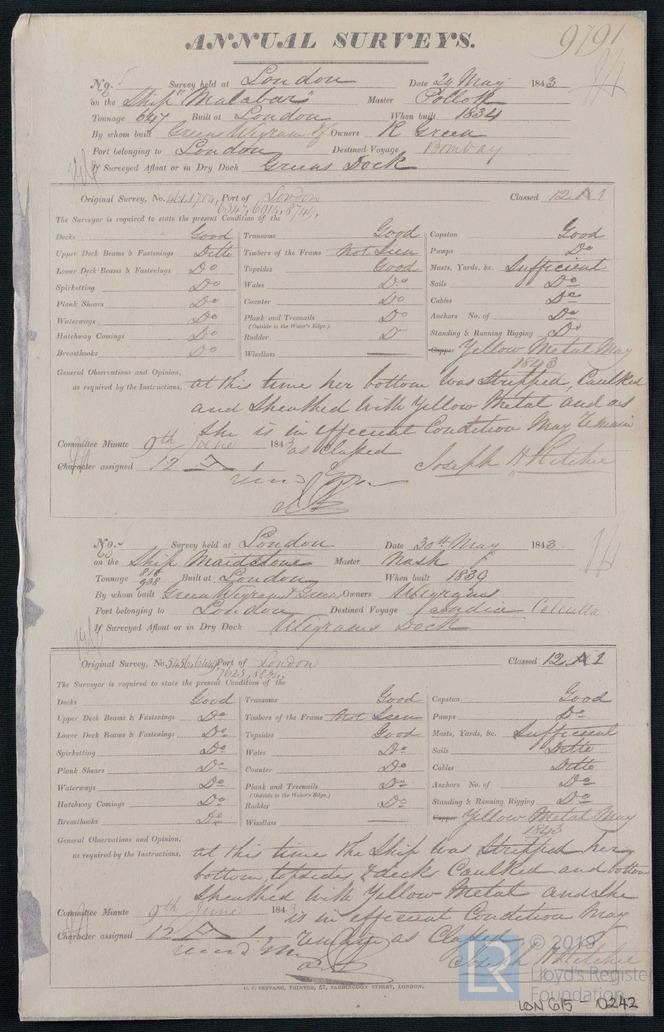 ANNUAL SURVEYS.
9791
No. Survey held at London Date 29 May 1843
on the Ship "Malabar" Master Pollok
Tonnage 647 Built at London When built 1834
By whom built Greens Wigrams & Owners R Green
Port belonging to London Destined Voyage Bombay
If Surveyed Afloat or in Dry Dock Greens Dock
Original Survey, No. Port of London Classed 12 A 1
6347, 6914, 8741,
The Surveyor is required to state the present Condition of the
Decks Good Transoms Good Capstan Good
Upper Deck Beams & Fastenings Ditto Timbers of the Frame Not Seen Pumps Do
Lower Deck Beams & Fastenings Do Topsides Good Masts, Yards, &c. Sufficient
Spirketting Do Wales Do Sails Do
Plank Shears Do Counter Do Cables Do
Waterways Do Plank and Treenails Do Anchors No. of Do
(Outside to the Water's Edge.)
Hatchway Comings Do Rudder D Standing & Running Rigging Do
Breasthooks Do Windlass — Copper Yellow Metal May
1843
General Observations and Opinion,
as required by the Instructions,
at this time her bottom was Stripped, Caulked
and Sheathed with Yellow Metal and as
She is in efficient Condition May Remain
Committee Minute 9th June 1843 as classed
Character assigned 12 A 1 Joseph H Ritchie
No. Survey held at London Date 30th May 1843
on the Ship Maidstone Master Nash
Tonnage 818 938 Built at London When built 1839
By whom built Green Wigrams & Green Owners Wigrams
Port belonging to London Destined Voyage Calcutta
If Surveyed Afloat or in Dry Dock Wigrams Dock
Original Survey, No. Port of London Classed 12 A 1
The Surveyor is required to state the present Condition of the
Decks Good Transoms Good Capstan Good
Upper Deck Beams & Fastenings Do Timbers of the Frame Not Seen Pumps Do
Lower Deck Beams & Fastenings Do Topsides Good Masts, Yards, &c. Sufficient
Spirketting Do Wales Do Sails Ditto
Plank Shears Do Counter Do Cables Ditto
Waterways Do Plank and Treenails Do Anchors No. of Do
(Outside to the Water's Edge.)
Hatchway Comings Do Rudder Do Standing & Running Rigging Do
Breasthooks Do Windlass — Copper Yellow Metal May
1843
General Observations and Opinion,
as required by the Instructions,
at this time the Ship was Stripped her
bottom, topsides & decks Caulked and bottom
Sheathed with Yellow Metal and She
Committee Minute 9th June 1843 is in efficient Condition May
Character assigned 12 A 1 Remain as Classed
Joseph H Ritchie
C. F. SEYFANG, PRINTER, 57, FARRINGDON STREET, LONDON.
LR © 2019
Lloyd's Register
Foundation
LON 615 0242